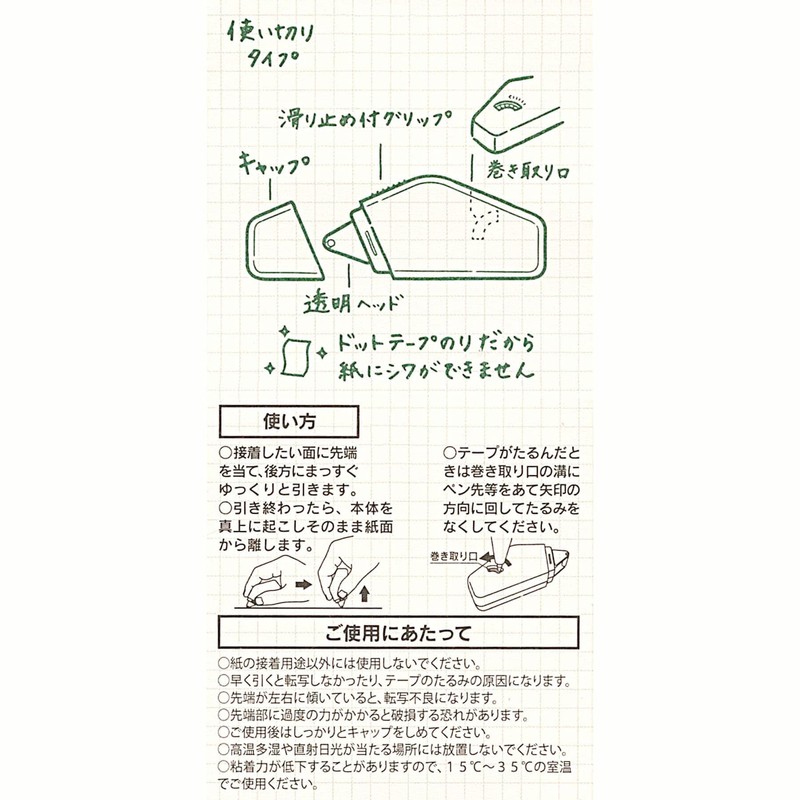 使い切り
タイプ
滑り止め付グリップ
巻き取り口
キャップ
透明ヘッド
ドットテープのりだから
紙にシワができません
使い方
○接着したい面に先端
を当て、後方にまっすぐ
ゆっくりと引きます。
○引き終わったら、本体を
真上に起こしそのまま紙面
から離します。
○テープがたるんだと
きは巻き取り口の溝に
ペン先等をあて矢印の
方向に回してたるみを
なくしてください。
巻き取り口
ご使用にあたって
○紙の接着用途以外には使用しないでください。
○早く引くと転写しなかったり、テープのたるみの原因になります。
○先端が左右に傾いていると、転写不良になります。
○先端部に過度の力がかかると破損する恐れがあります。
○ご使用後はしっかりとキャップをしめてください。
○高温多湿や直射日光が当たる場所には放置しないでください。
○粘着力が低下することがありますので、１５℃～３５℃の室温
でご使用ください。